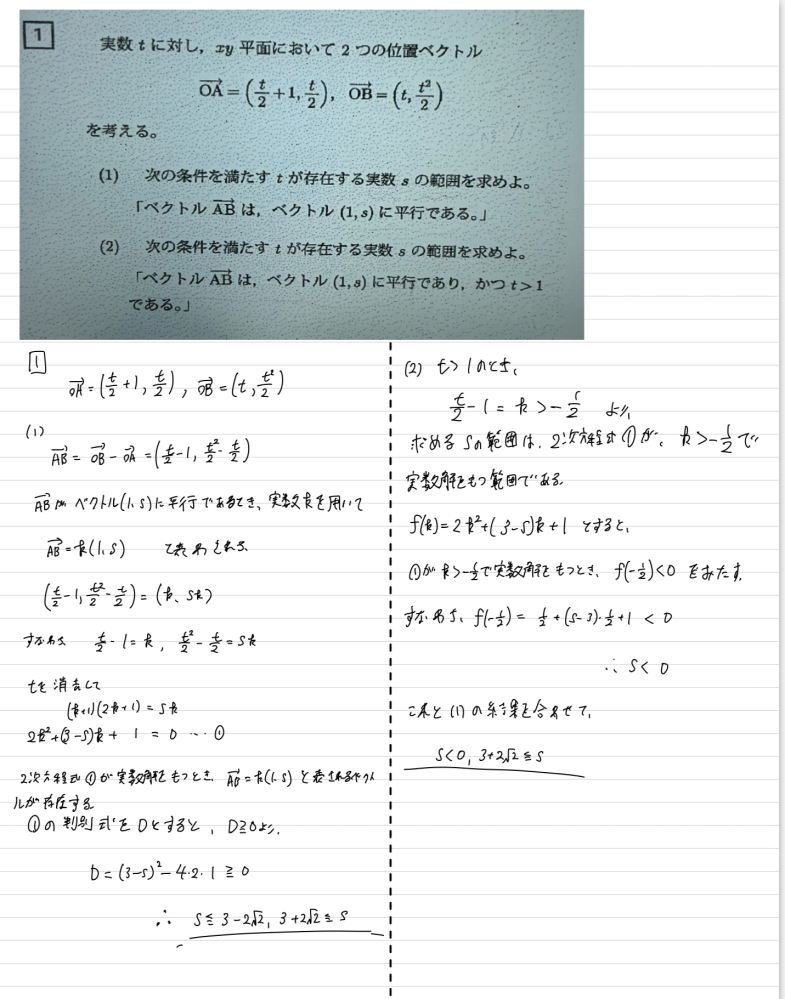 1
実数 t に対し，xy 平面において 2 つの位置ベクトル
OA→ = (t/2 + 1, t/2), OB→ = (t, t²/2)
を考える。
(1) 次の条件を満たす t が存在する実数 s の範囲を求めよ。
「ベクトル AB→ は，ベクトル (1, s) に平行である。」
(2) 次の条件を満たす t が存在する実数 s の範囲を求めよ。
「ベクトル AB→ は，ベクトル (1, s) に平行であり，かつ t > 1
である。」
1
OA→ = (t/2 + 1, t/2), OB→ = (t, t²/2)
(1)
AB→ = OB→ - OA→ = (t/2 - 1, t²/2 - t/2)
AB→ が ベクトル(1, s) に平行であるとき、実数kを用いて
AB→ = k(1, s) と表わされる
(t/2 - 1, t²/2 - t/2) = (k, sk)
すなわち t/2 - 1 = k, t²/2 - t/2 = sk
tを消去して
(k+1)(2k+1) = sk
2k²+(3-s)k + 1 = 0 … ①
2次方程式①が実数解をもつとき、AB→ = k(1, s) と表されるベクト
ルが存在する
①の判別式をDとすると、D≧0より.
D = (3-s)² - 4・2・1 ≧ 0
∴ s ≦ 3-2√2, 3+2√2 ≦ s
(2) t > 1 のとき、
t/2 - 1 = k > -1/2 より、
求めるsの範囲は、2次方程式①が、k > -1/2 で
実数解をもつ範囲である.
f(k) = 2k²+(3-s)k+1 とすると、
①が k > -1/2 で実数解をもつとき、f(-1/2) < 0 をみたす.
すなわち、f(-1/2) = 1/2 + (s-3)・1/2 + 1 < 0
∴ s < 0
これと (1) の結果を合わせて、
s < 0, 3+2√2 ≦ s